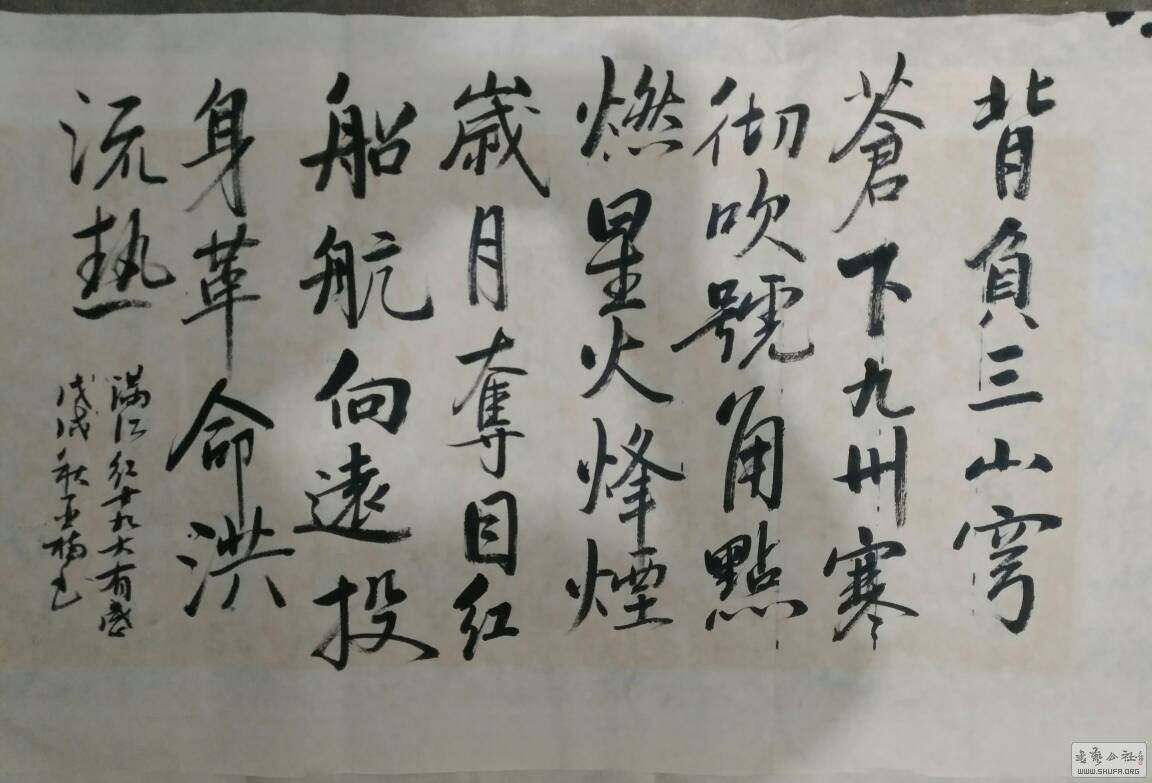 背負三山穹
蒼下九州寒
彻吹號角點
燃星火烽煙
歲月奪目红
船航向遠投
身革命洪
流熱
满江红十九大有感
戊戌秋
WWW.SHUFA.ORG